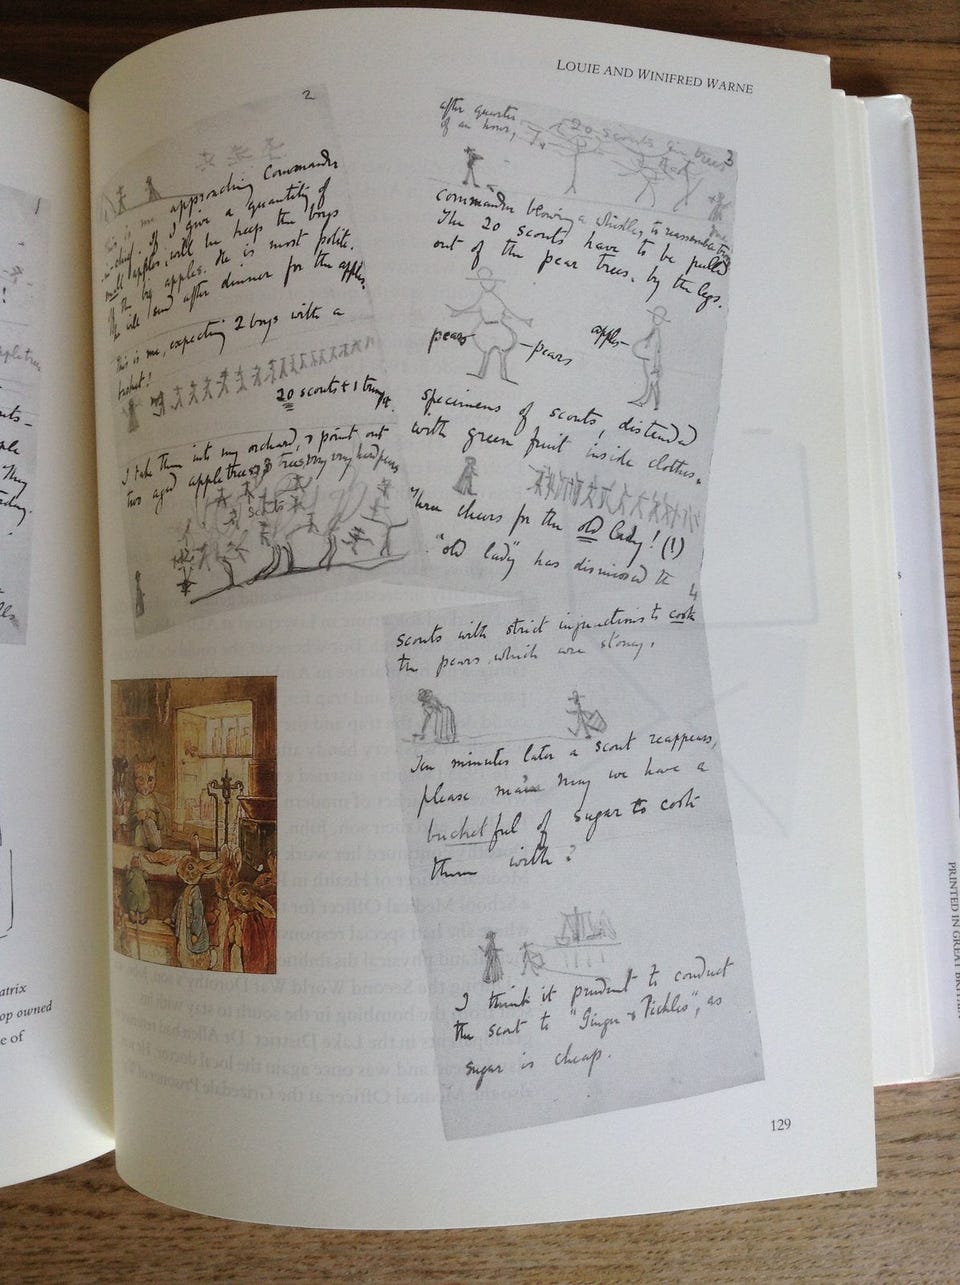 LOUIE AND WINIFRED WARNE
2
this is me approaching Commander
in chief. If I give a quantity of
small apples, will he keep the boys
off the big apples. He is most polite.
He will send after dinner for the apples.
this is me, expecting 2 boys with a
basket!
20 scouts & 1 trumpet.
I take them into my orchard, & point out
two aged apple trees, & 3 trees, very very hard pears
scouts
3
after quarter
of an hour,
20 scouts in trees
commander blowing a whistle, to reassemble troop
The 20 scouts have to be pulled
out of the pear trees, by the legs.
pears
-pears
apples-
specimens of scouts, distended
with green fruit inside clothes.
Three cheers for the old lady! (!)
"old lady" has dismissed the
4
scouts with strict injunctions to cook
the pears which were stoney.
Ten minutes later a scout reappears,
please ma'am may we have a
bucketful of sugar to cook
them with?
I think it prudent to conduct
the scout to "Ginger & Pickles", as
sugar is cheap.
129
1
atrix
op owned
e of
PRINTED IN GREAT BRITAIN